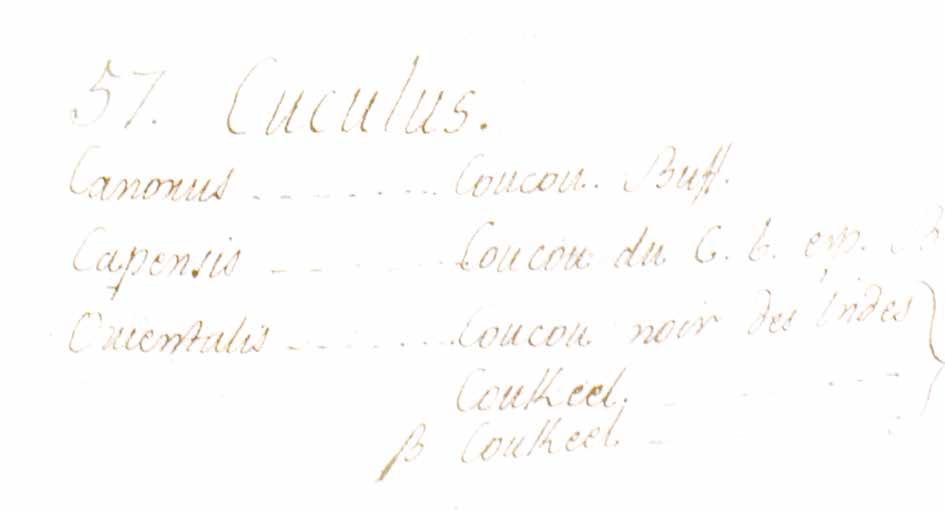 57. Cuculus.
Canorus - - - - - - - Coucou. Buff.
Capensis - - - - - - Coucou du C. b. esp.
Orientalis - - - - - - Coucou noir des indes }
Coukeel. - - - - -
β Coukeel. -